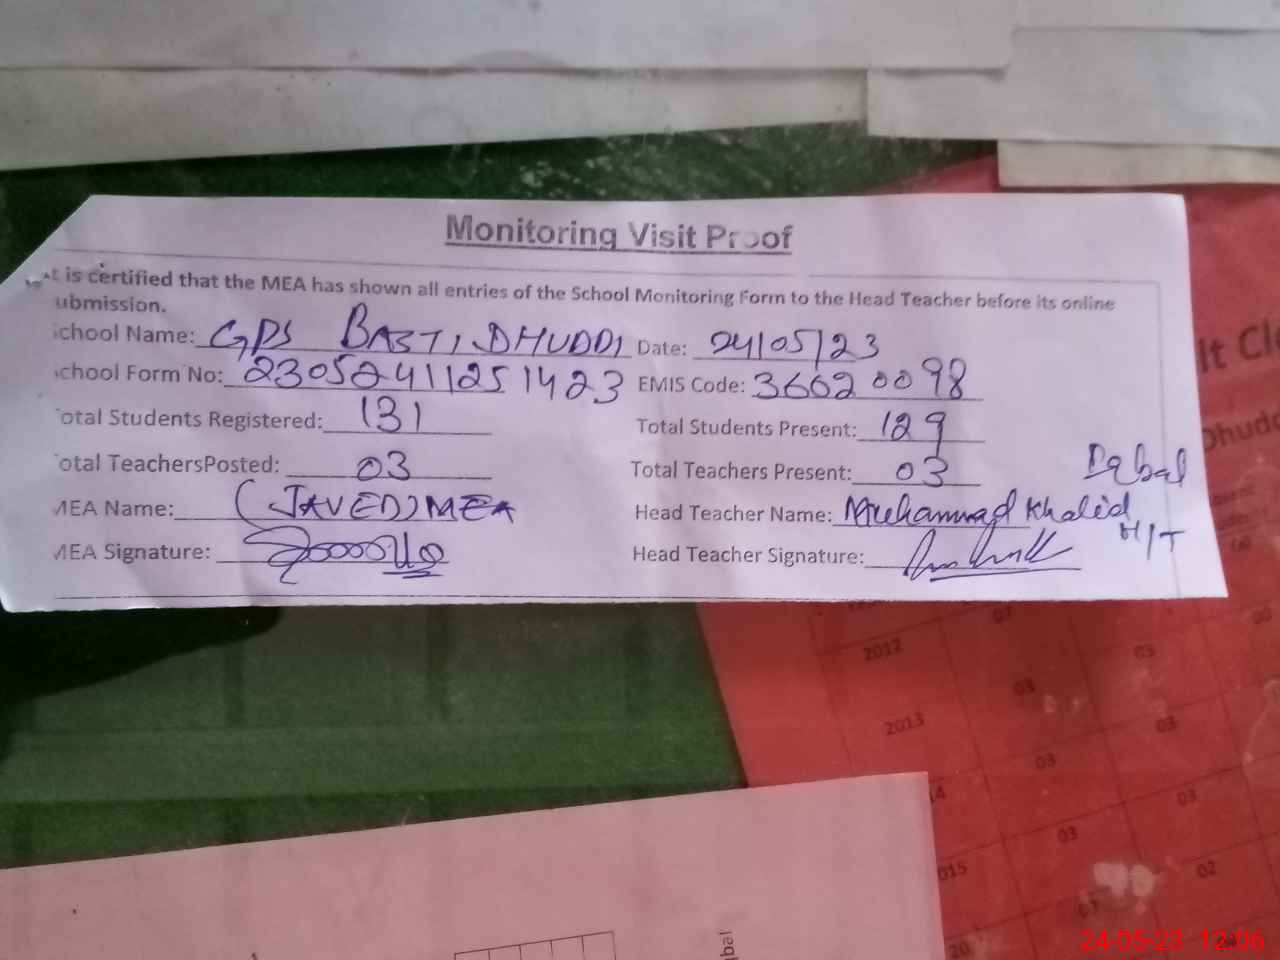 Monitoring Visit Proof
t is certified that the MEA has shown all entries of the School Monitoring Form to the Head Teacher before its online
ubmission.
chool Name: GPS BASTI DHUDDI Date: 24/05/23
chool Form No: 23052411251423 EMIS Code: 36620098
otal Students Registered: 131 Total Students Present: 129
otal TeachersPosted: 03 Total Teachers Present: 03
Iqbal
MEA Name: (JAVED) MEA Head Teacher Name: Muhammad Khalid
H/T
MEA Signature: Head Teacher Signature:
it Cl
Dhudd
2012
07
03
03
2013
03
03
14
03
03
015
02
20
qbal
24-05-23 12:06